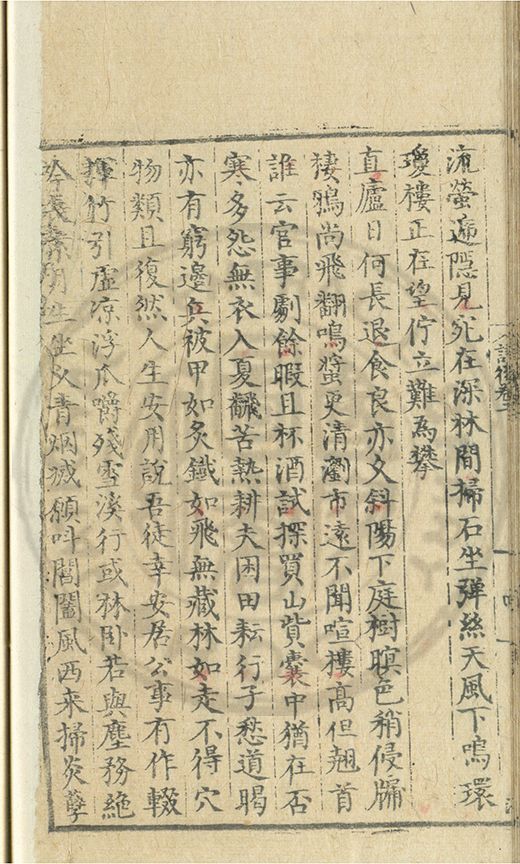 流螢遞隱見宛在深林間掃石坐彈絲天風下鳴環
瓊樓正在望佇立難為攀
直廬日何長退食良亦久斜陽下庭樹暝色稍侵牖
棲鴉尚飛翻鳴螿更清瀏市遠不聞喧樓高但翹首
誰云官事劇餘暇且杯酒試探買山貲囊中猶在否
寒多怨無衣入夏翻苦熱耕夫困田耘行子愁道暍
亦有窮邊兵被甲如炙鐵如飛無藏林如走不得穴
物類且復然人生安用說吾徒幸安居公事有作輟
竹引虛凉浮瓜嚼殘雪溪行或林卧若與塵務絶
生坐久青烟滅願叫閶闔風西来掃炎孽